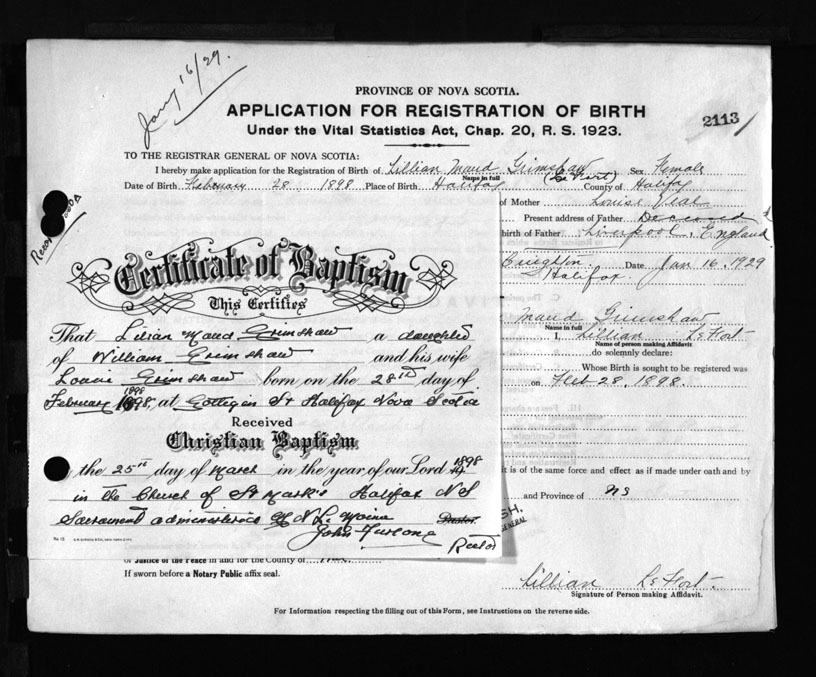 Jany 16/29.
PROVINCE OF NOVA SCOTIA.
APPLICATION FOR REGISTRATION OF BIRTH
Under the Vital Statistics Act, Chap. 20, R. S. 1923.
2113
TO THE REGISTRAR GENERAL OF NOVA SCOTIA:
I hereby make application for the Registration of Birth of Lillian Maud Grimshaw Sex Female
Name in full (Le Fort)
Date of Birth February 28 1898 Place of Birth Halifax County of Halifax
of Mother Louise Veal
Present address of Father Deceased
birth of Father Liverpool, England
Creighton Date Jan 16, 1929
Halifax
Maud Grimshaw
Name in full
I, Lillian Le Fort
Name of person making Affidavit
do solemnly declare:
Whose Birth is sought to be registered was
on Feb 28, 1898.
it is of the same force and effect as if made under oath and by
and Province of NS
Certificate of Baptism
This Certifies
That Lilian Maud Grimshaw a daughter
of William Grimshaw and his wife
Louise Grimshaw born on the 28th day of
February 1898, at Gottigen St Halifax Nova Scotia
1898
Received
Christian Baptism
the 25th day of March in the year of our Lord 1898
in the Church of St Mark's Halifax NS
Sacrament administered N Le Moine Pastor
John Furlong
Rector
No 13
of Justice of the Peace in and for the County of
If sworn before a Notary Public affix seal.
Lillian Le Fort
Signature of Person making Affidavit.
For Information respecting the filling out of this Form, see Instructions on the reverse side.